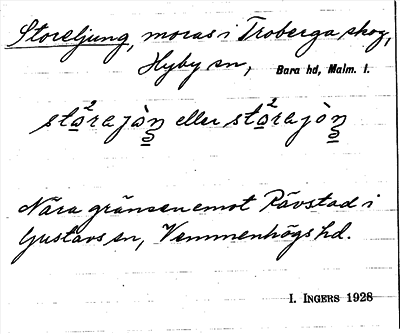 Storeljung, moras i Troberga skog,
Hyby sn, Bara hd, Malm. l.
stòrajòn eller stòrajòn
Nära gränsen emot Rävstad i
Gustavs sn, Vemmenhögs hd.
I. INGERS 1928